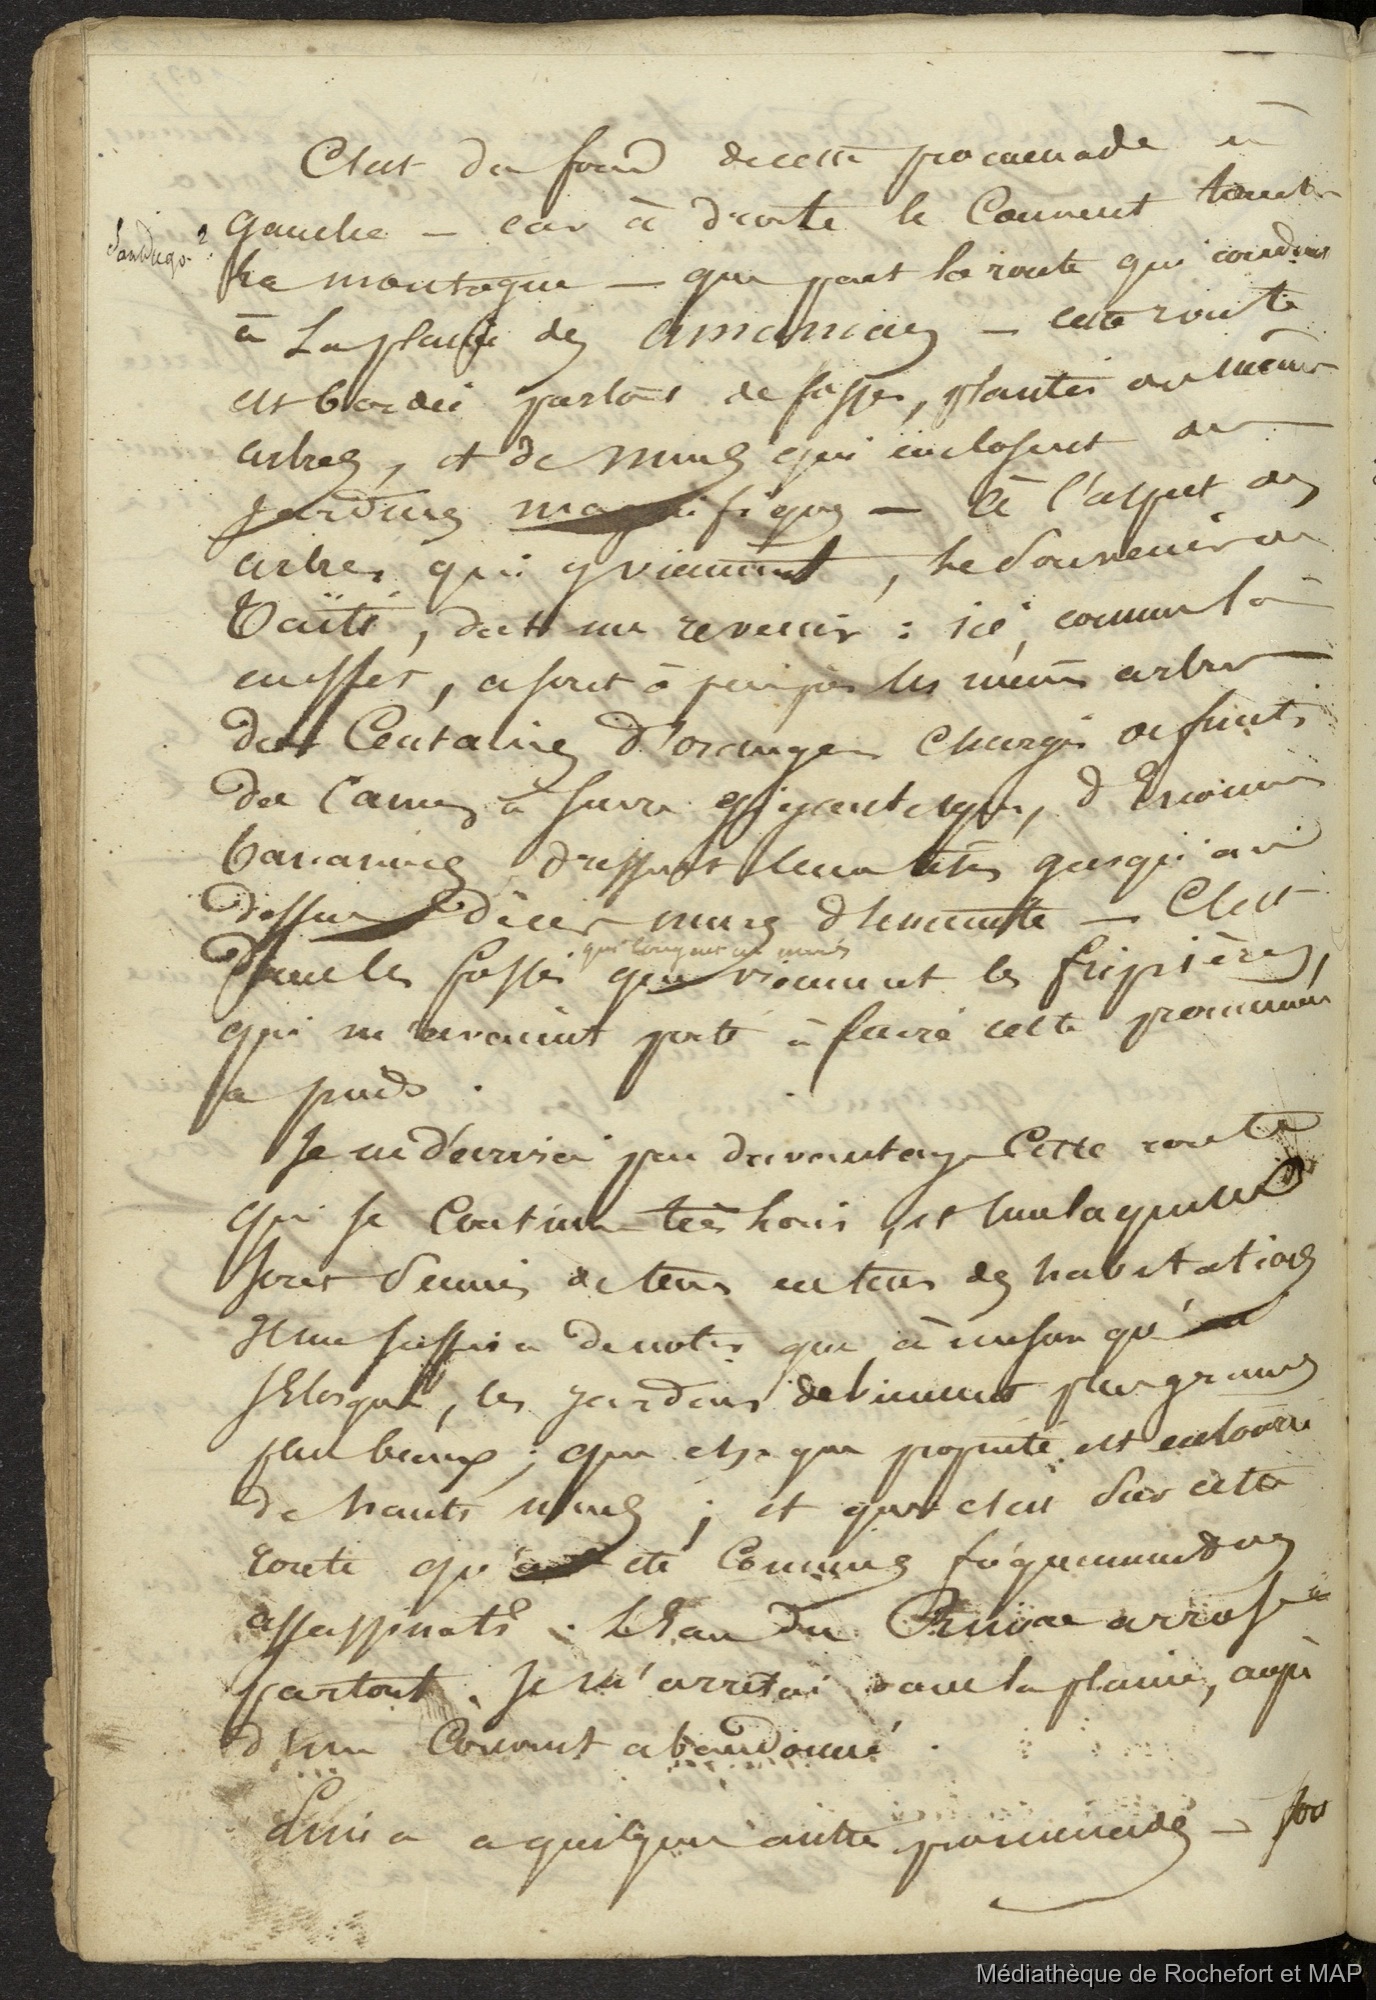 C'est du fond de cette promenade à
gauche — car à droite le Couvent touche
Sandiego ?
la montagne — que part la route qui conduit
à La plaine des amancaes — cette route
est bordée partout de fossés, plantés de mêmes
arbres, et de murs qui enclosent de
jardins magnifiques — à l'aspect des
arbres qui y viennent, le Souvenir de
Taïti, doit me revenir : ici, comme là
en effet, ce sont à peu près les mêmes arbres
des Centaines d'orangers chargés de fruits
des Cannes à sucre gigantesques, d'Enormes
bananiers dressent leurs têtes jusqu'au
dessus de ces murs d'enceinte — C'est
qui longent ces murs
Dans les fossés que viennent les fripières,
qui m'avaient porté à faire cette promenade
à pieds.
Je ne décrirai pas davantage Cette route
qui se Continue très loin, et sur laquelle
sont Semés de tems en tems des habitations
Il me suffira de noter que à mesure qu'on
s'Eloigne, les jardins deviennent plus grands
plus beaux ; que chaque propriété est entourée
de hauts murs ; et que c'est Sur cette
route qu'ont été Commis fréquemment des
assassinats. L'Eau du Rimac arrose
partout. Je m'arretai dans la plaine, auprès
d'un Couvent abandonné.
Lima a quelques autres promenades — hors
Médiathèque de Rochefort et MAP